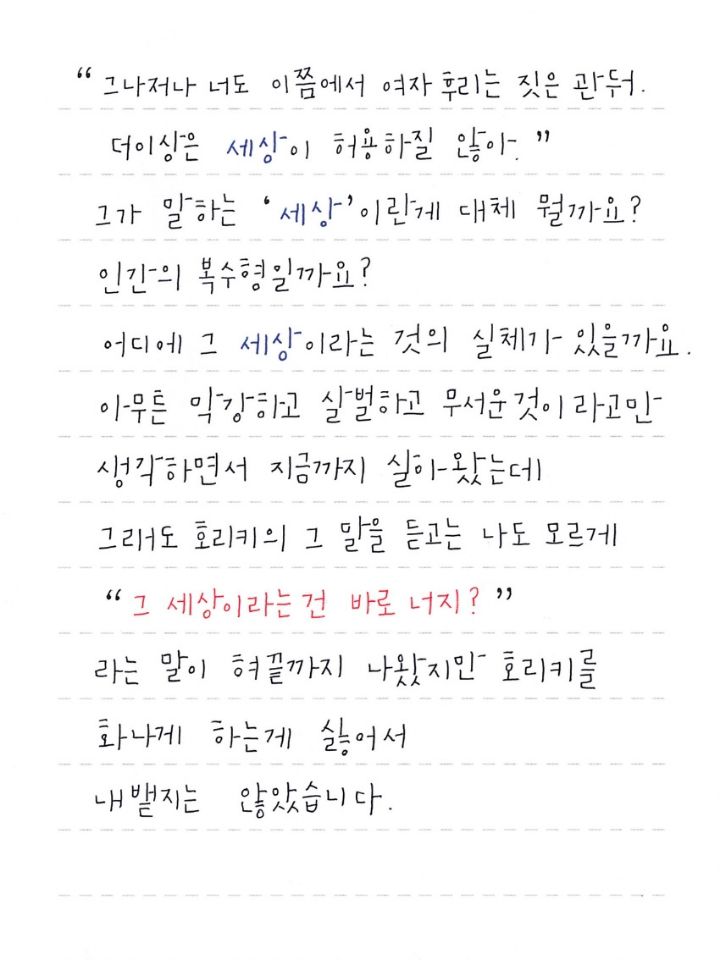 “그나저나 너도 이쯤에서 여자 후리는 짓은 관둬.
더이상은 세상이 허용하질 않아.”
그가 말하는 ‘세상’이란게 대체 뭘까요?
인간의 복수형일까요?
어디에 그 세상이라는 것의 실체가 있을까요.
아무튼 막강하고 살벌하고 무서운 것이라고만
생각하면서 지금까지 살아왔는데
그래도 호리키의 그 말을 듣고는 나도 모르게
“그 세상이라는 건 바로 너지?”
라는 말이 혀끝까지 나왔지만 호리키를
화나게 하는게 싫어서
내뱉지는 않았습니다.